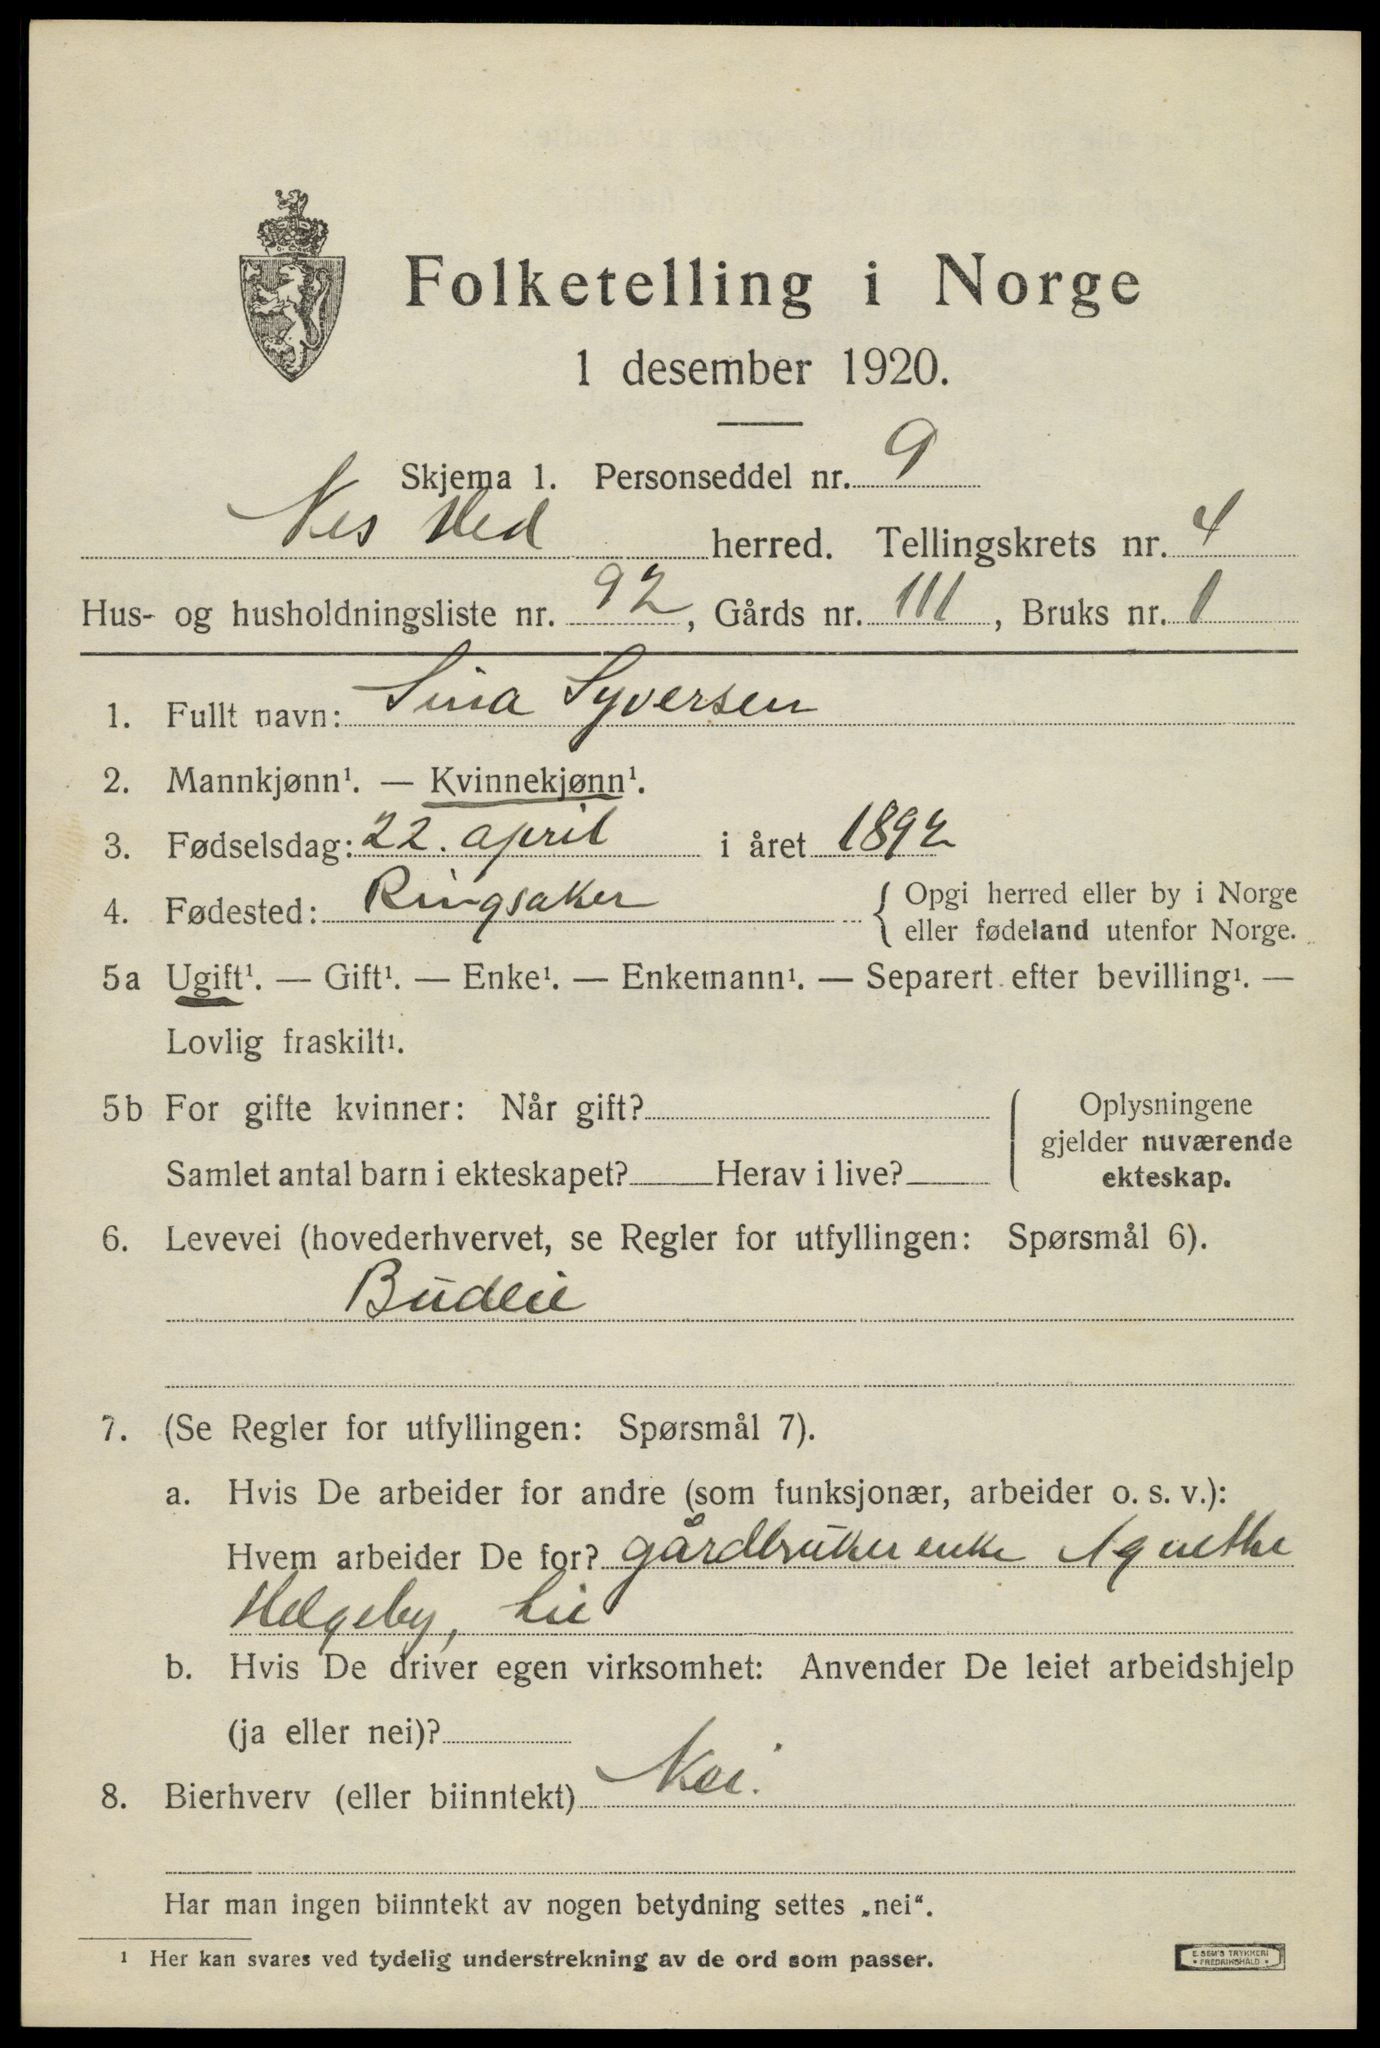 Folketelling i Norge
1 desember 1920.
Skjema 1. Personseddel nr. 9
Nes Hed herred. Tellingskrets nr. 4
Hus- og husholdningsliste nr. 92, Gårds nr. 111, Bruks nr. 1
1. Fullt navn: Sina Syversen
2. Mannkjønn¹. — Kvinnekjønn¹.
3. Fødselsdag: 22. april i året 1892
4. Fødested: Ringsaker { Opgi herred eller by i Norge
eller fødeland utenfor Norge.
5a Ugift¹. — Gift¹. — Enke¹. — Enkemann¹. — Separert efter bevilling¹. —
Lovlig fraskilt¹.
5b For gifte kvinner: Når gift?
Samlet antal barn i ekteskapet? Herav i live?
Oplysningene
gjelder nuværende
ekteskap.
6. Levevei (hovederhvervet, se Regler for utfyllingen: Spørsmål 6).
Budeie
7. (Se Regler for utfyllingen: Spørsmål 7).
a. Hvis De arbeider for andre (som funksjonær, arbeider o. s. v.):
Hvem arbeider De for? gårdbruker enke Agnethe
Helgeby, Lie
b. Hvis De driver egen virksomhet: Anvender De leiet arbeidshjelp
(ja eller nei)?
8. Bierhverv (eller biinntekt) Nei.
Har man ingen biinntekt av nogen betydning settes „nei“.
¹ Her kan svares ved tydelig understrekning av de ord som passer.
E. SEM'S TRYKKERI
• FREDRIKSHALD •